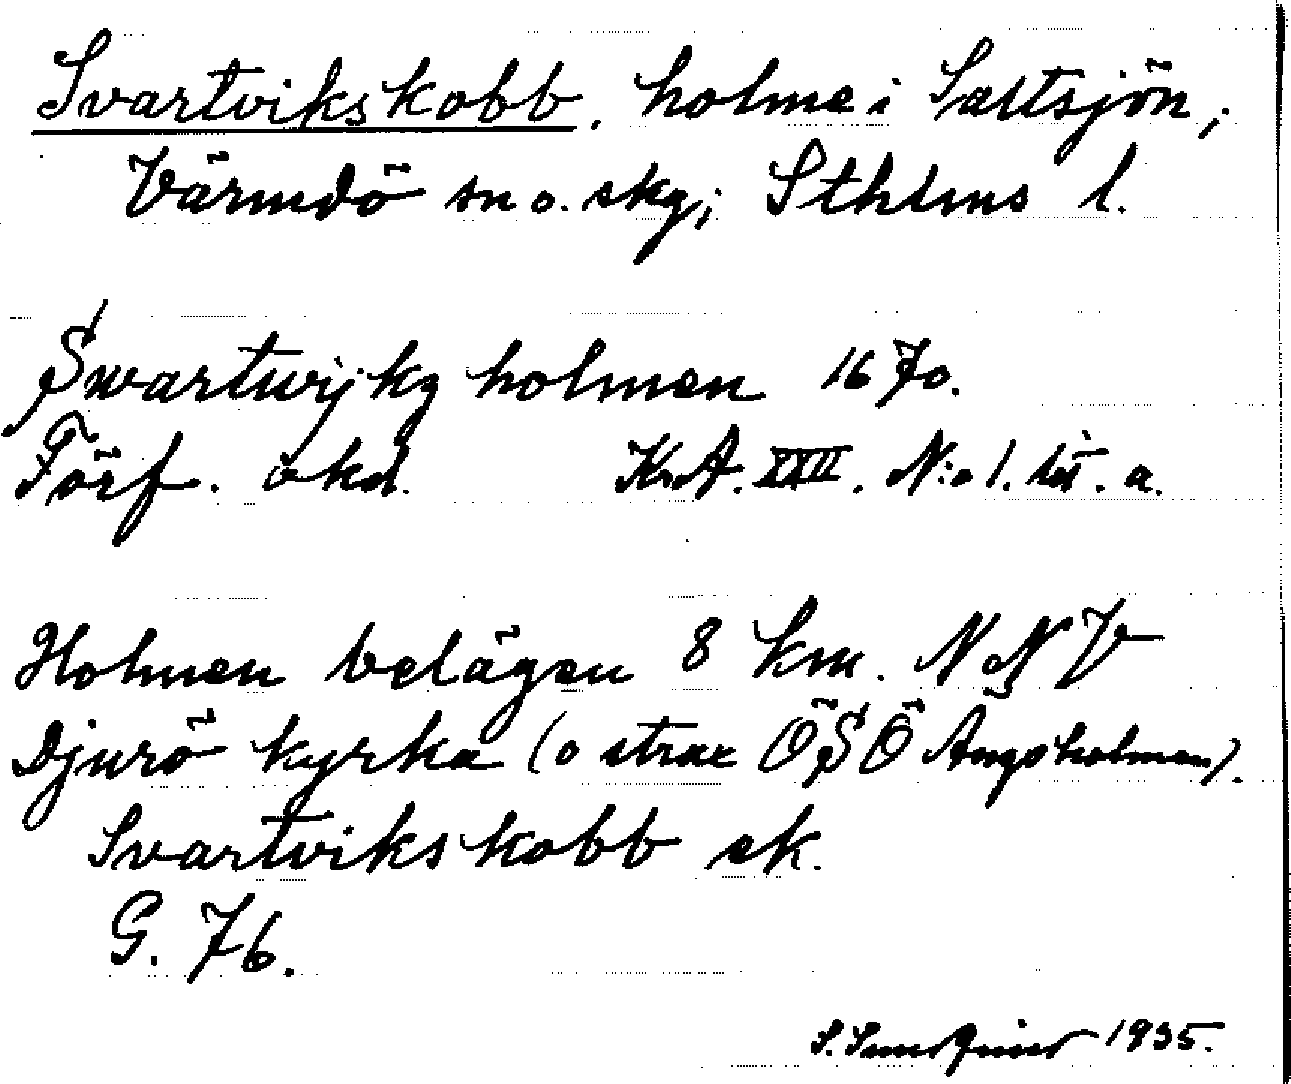 Svartvikskobb, holme i Saltsjön,
Värmdö sn o. skg; Sthlms l.
Swartwijkz holmen 1670.
Förf. okd. KrA. XXII. N:o 1. lit. a.
Holmen belägen 8 km. NNV
Djurö kyrka (o strax ÖSÖ Ängsholmen).
Svartvikskobb ek.
G. 76.
S. 1935.